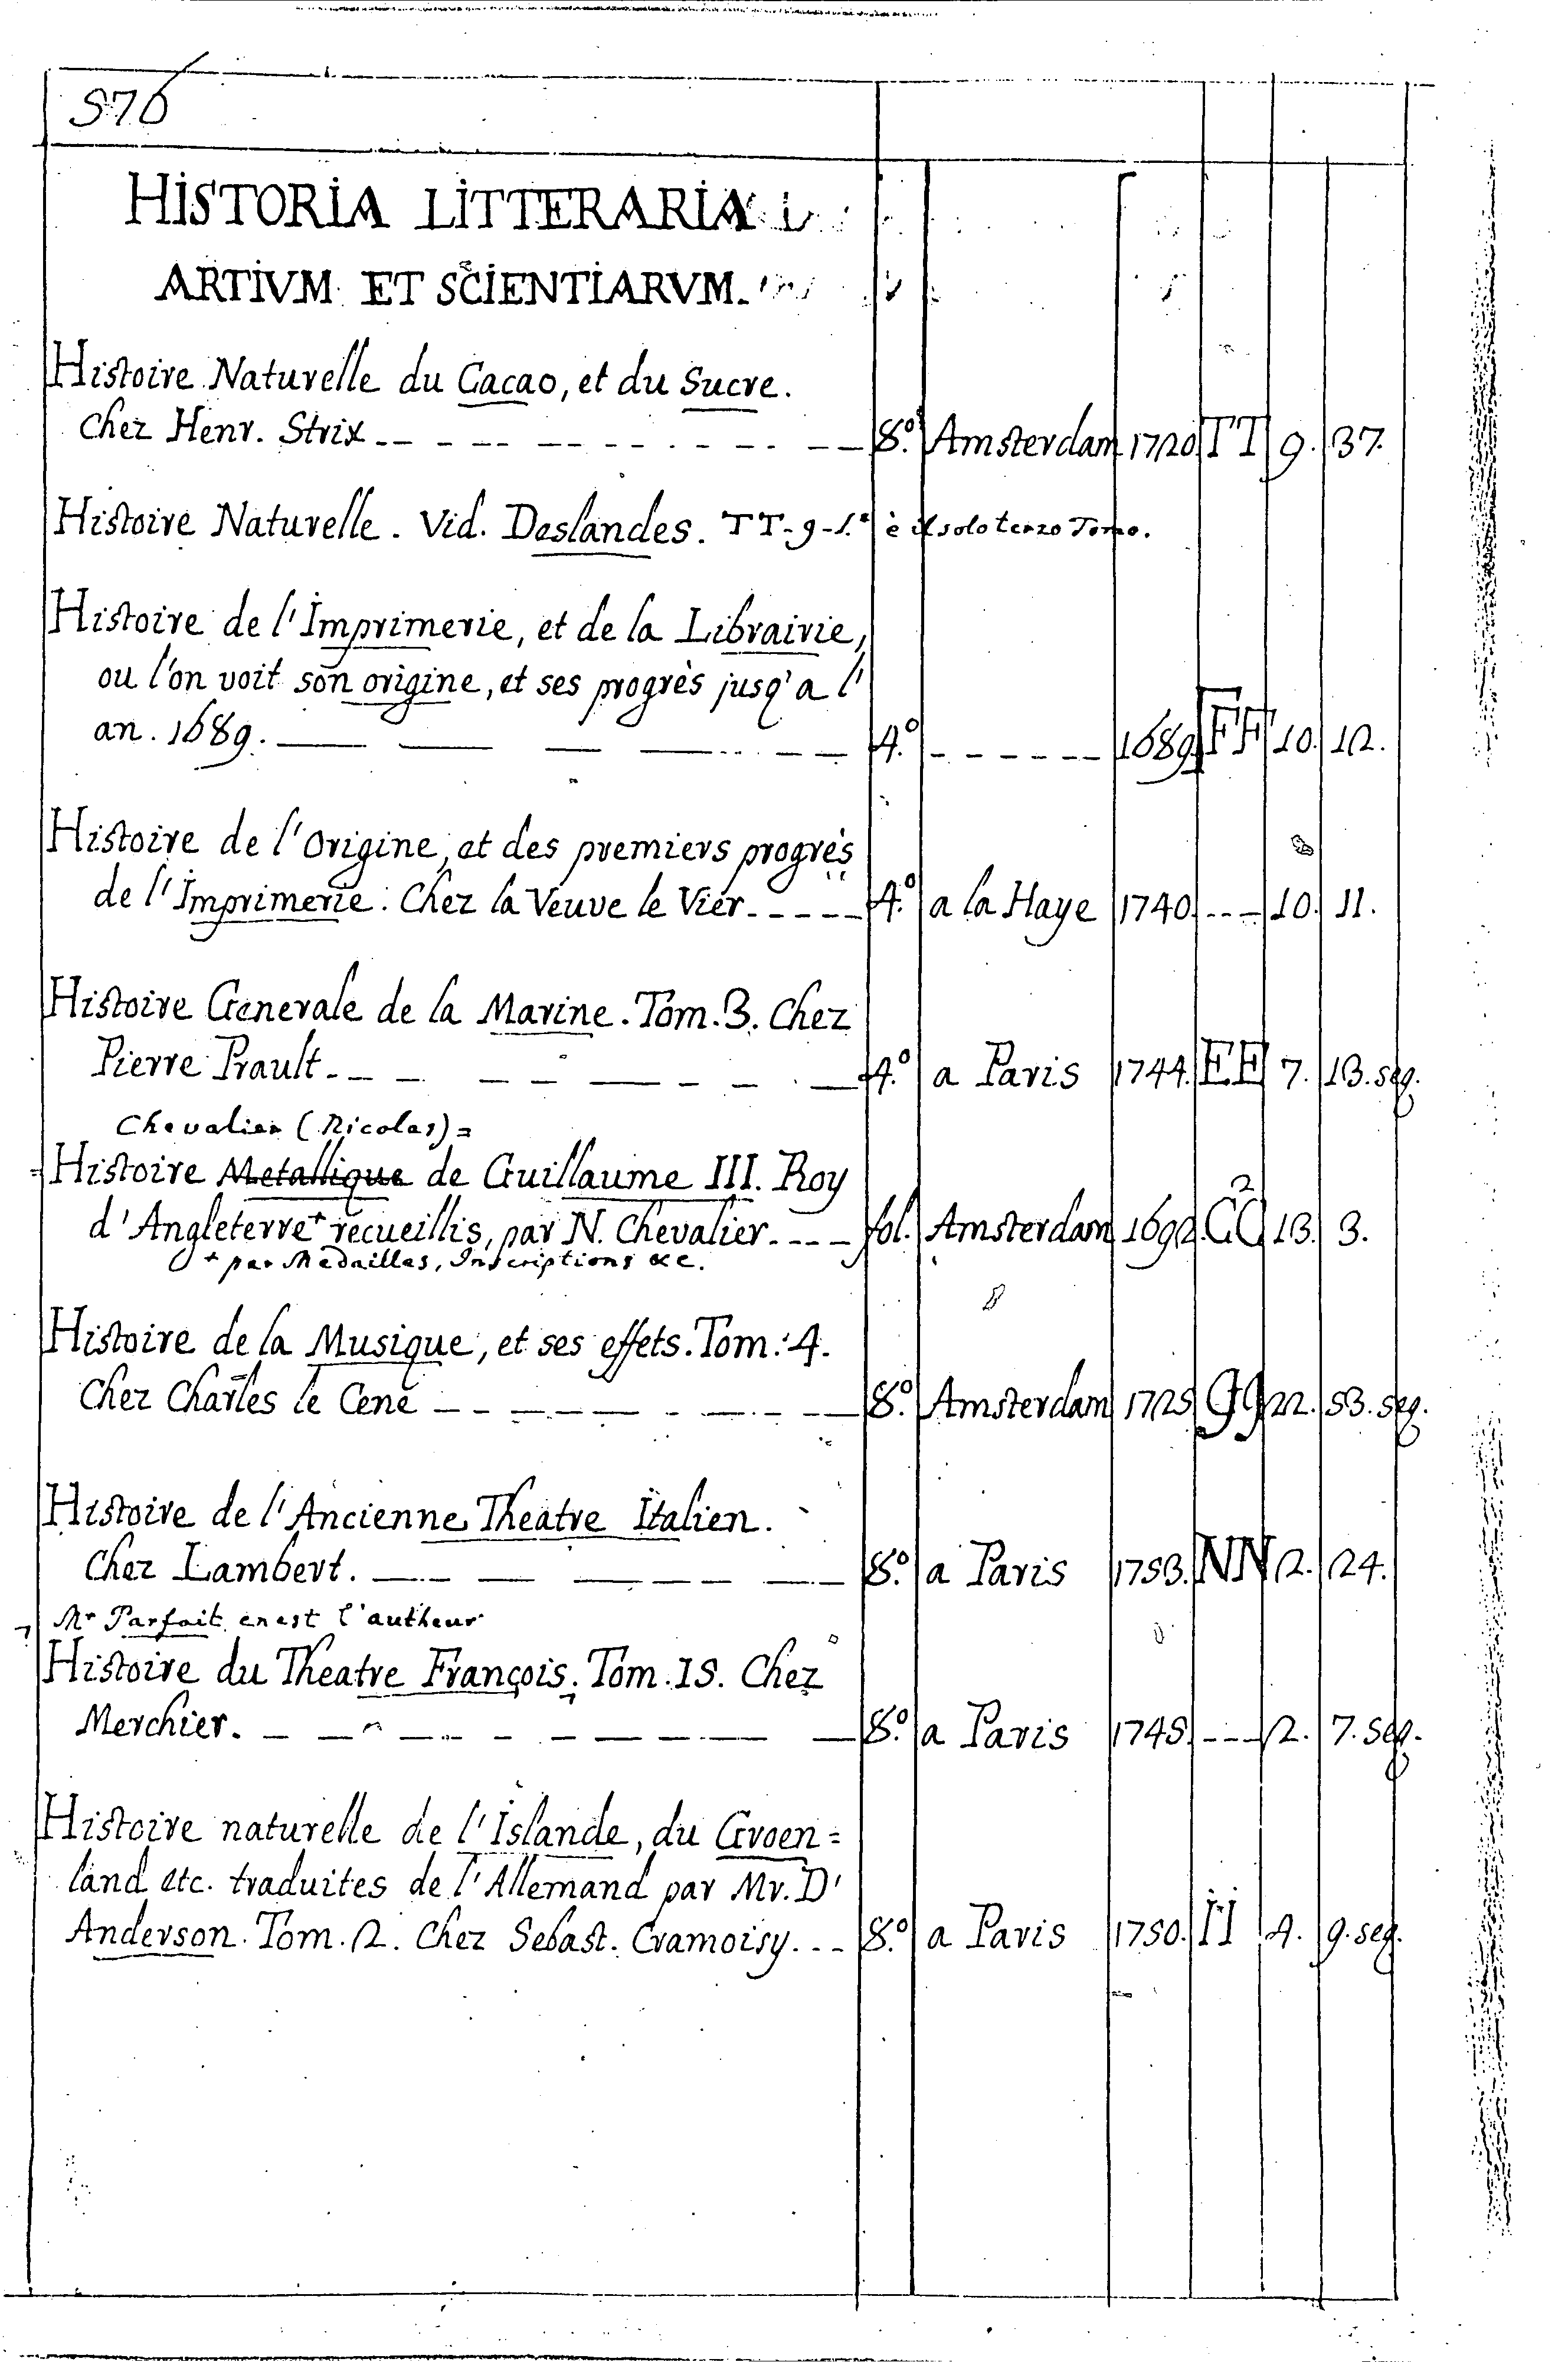 576
HISTORIA LITTERARIA
ARTIVM ET SCIENTIARVM.
Histoire Naturelle du Cacao, et du Sucre.
Chez Henr. Strix 8.º Amsterdam 1720 TT 9. 37.
Histoire Naturelle. Vid. Deslandes. TT-9-5.º è il solo terzo Tomo.
Histoire de l'Imprimerie, et de la Librairie,
ou l'on voit son origine, et ses progrès jusq'a l'
an. 1689. 4.º 1689. FF 10. 12.
Histoire de l'Origine, et des premiers progrès
de l'Imprimerie: Chez la Veuve le Vier 4.º a la Haye 1740. 10. 11.
Histoire Generale de la Marine. Tom. 3. Chez
Pierre Prault 4.º a Paris 1744. EE 7. 13. seq.
Chevalier (Nicolas) =
Histoire Metallique de Guillaume III. Roy
d'Angleterre + recueillis, par N. Chevalier fol. Amsterdam 1692. CC 2 13. 3.
+ par Medailles, Inscriptions &c.
Histoire de la Musique, et ses effets. Tom: 4.
Chez Charles le Cene 8.º Amsterdam 1725 GG 22. 53. seq.
Histoire de l'Ancienne Theatre Italien.
Chez Lambert. 8.º a Paris 1753. NN 2. 24.
Mr Parfait en est l'autheur
Histoire du Theatre François. Tom. 15. Chez
Merchier. 8.º a Paris 1745. 2. 7. seq.
Histoire naturelle de l'Islande, du Groen=
land etc. traduites de l'Allemand par Mr. D'
Anderson. Tom. 2. Chez Sebast. Cramoisy 8.º a Paris 1750. II 4. 9. seq.